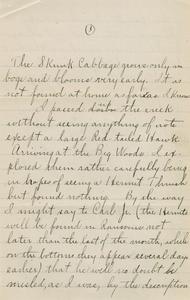 (3)
The Skunk Cabbage grows only in
bogs and blooms very early. It is
not found at home as far as I know.
I passed down the creek
without seeing anything of note
except a large Red tailed Hawk
Arriving at the Big Woods I ex
plored them rather carefully being
in hopes of seeing a Hermit Thrush
but found nothing. By the way
I might say to Carl Jr. (the Hermits
will be found in Ransoms not
later than the last of the month, while
on the bottoms they appear several days
earlier) that he will no doubt be
misled, as I was, by the description